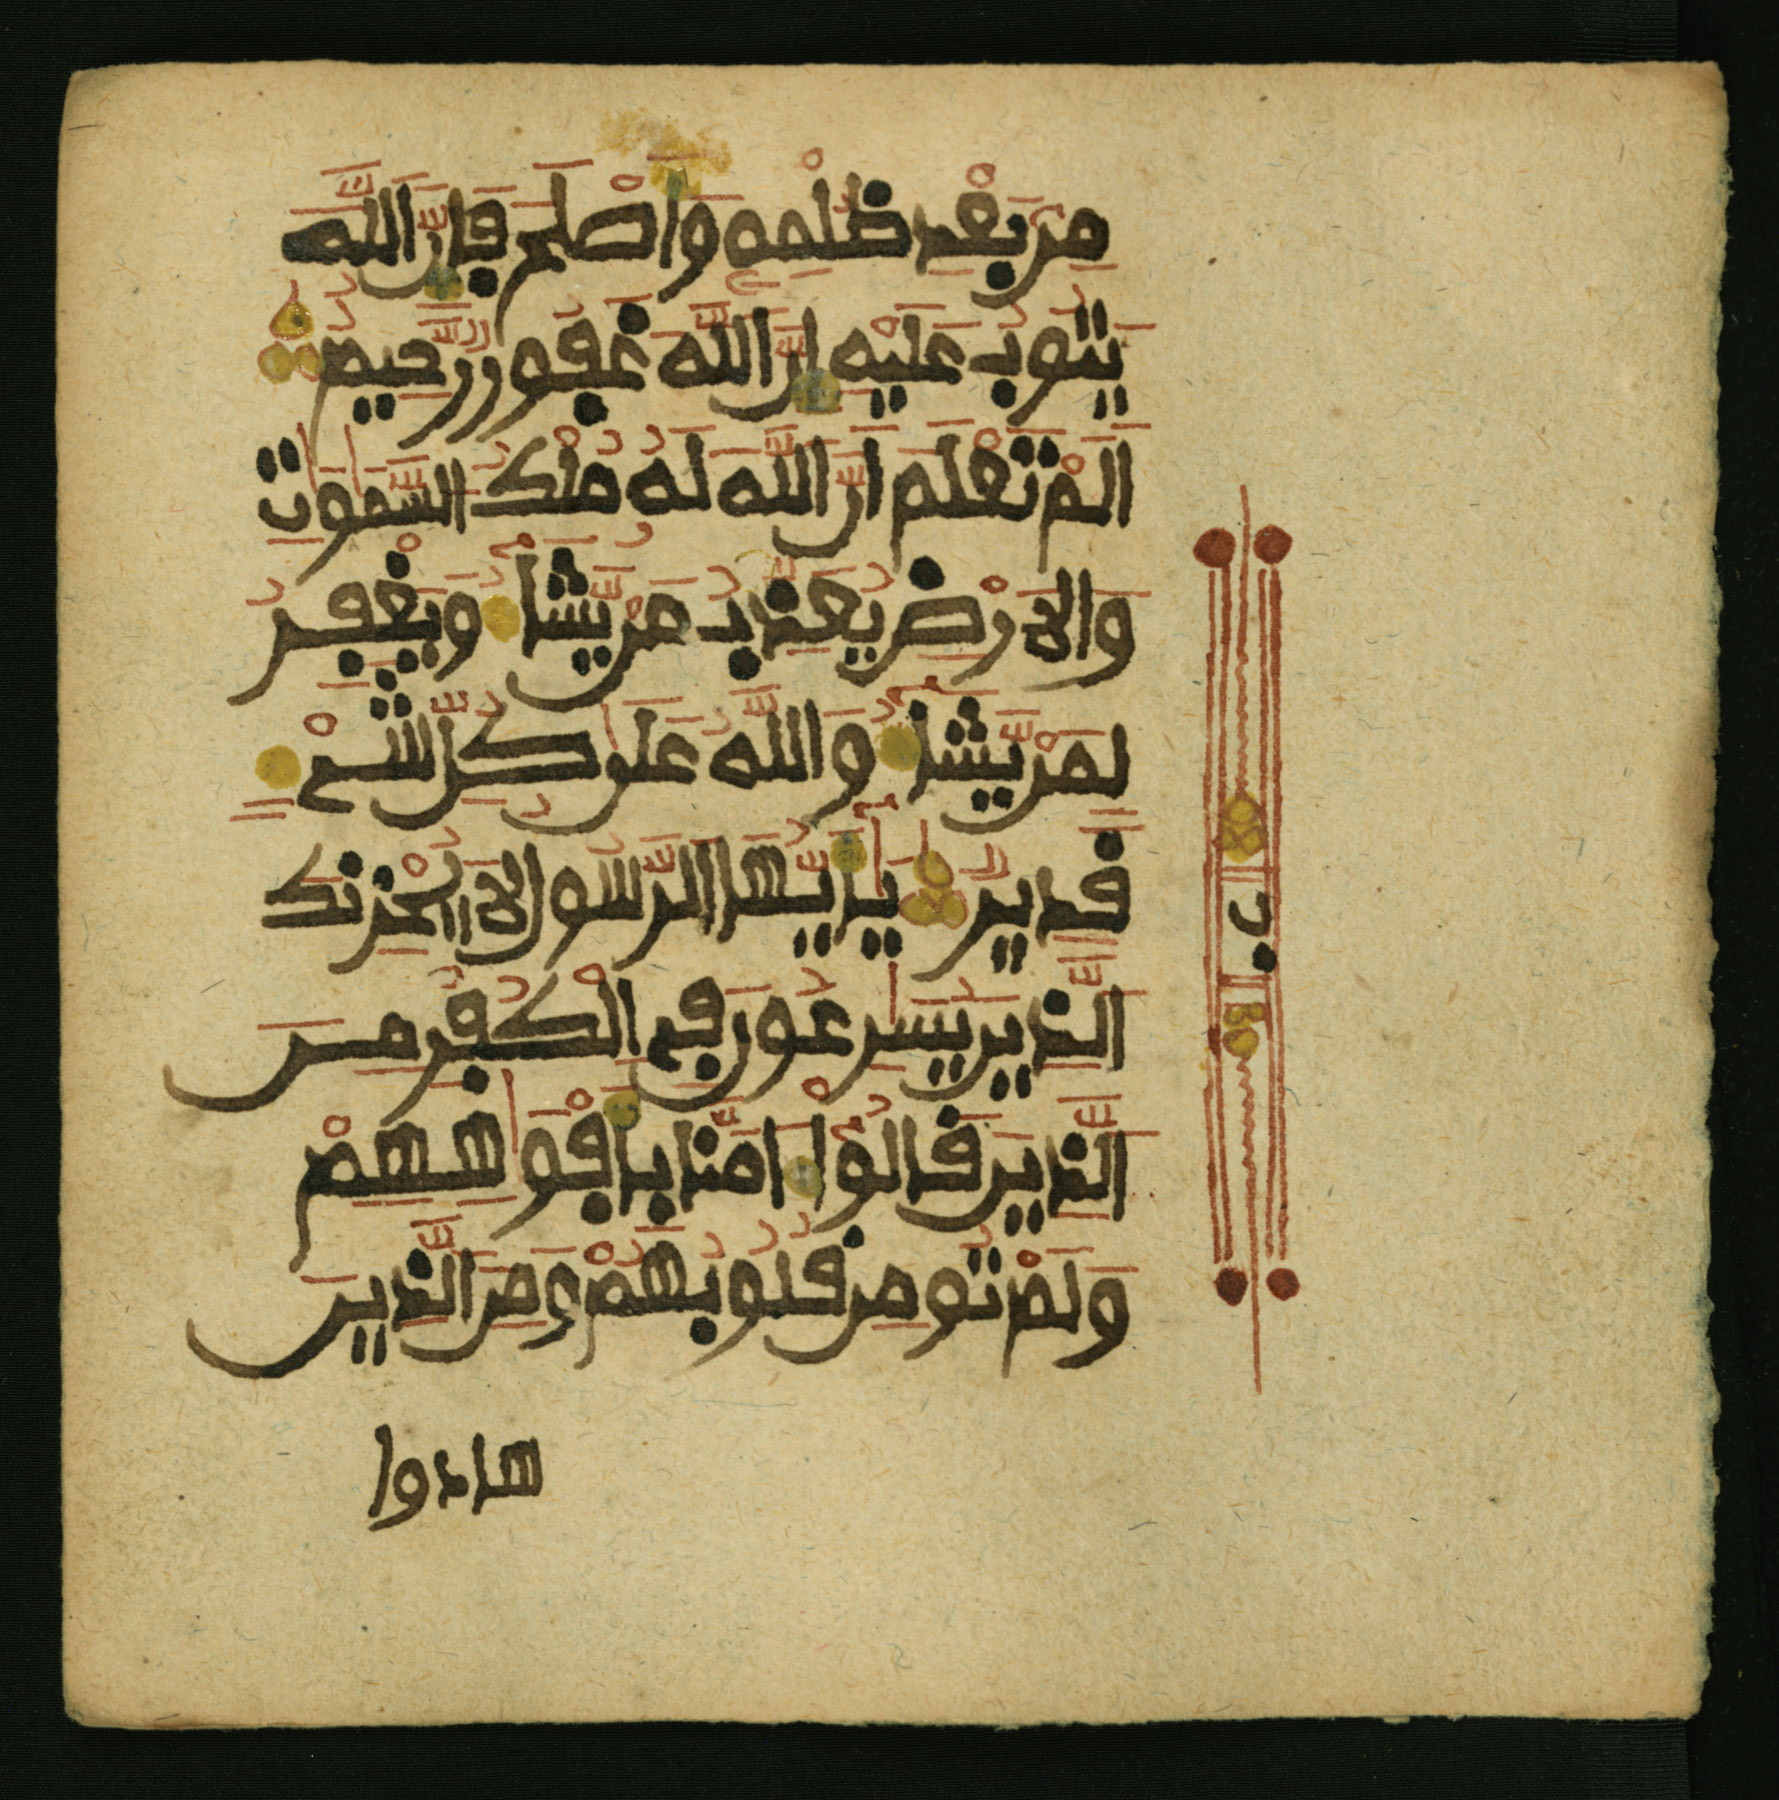 مِنۢ بَعْدِ ظُلْمِهِۦ وَأَصْلَحَ فَإِنَّ اَللَّهَ
يَتُوبُ عَلَيْهِ إِنَّ اَللَّهَ غَفُورٌ رَّحِيمٌ
أَلَمْ تَعْلَمَ اَنَّ اَللَّهَ لَهُۥ مُلْكُ السَّمَٰوَٰتِ
وَالَارْضِ يُعَذِّبُ مَنْ يَّشَآءُ وَيَغْفِرُ
لِمَنْ يَّشَآءُ وَاللَّهُ عَلَىٰ كُلِّ شَےْءٍ
قَدِيرٌ يَٰٓأَيُّهَا اَلرَّسُولُ لَا يُحْزِنكَ
اَلَّذِينَ يُسَٰرِعُونَ فِے الْكُفْرِ مِنَ
اَلَّذِينَ قَالُوٓاْ ءَامَنَّا بِأَفْوَٰهِهِمْ
وَلَمْ تُومِن قُلُوبُهُمْ وَمِنَ اَلَّذِينَ
هادوا
ب